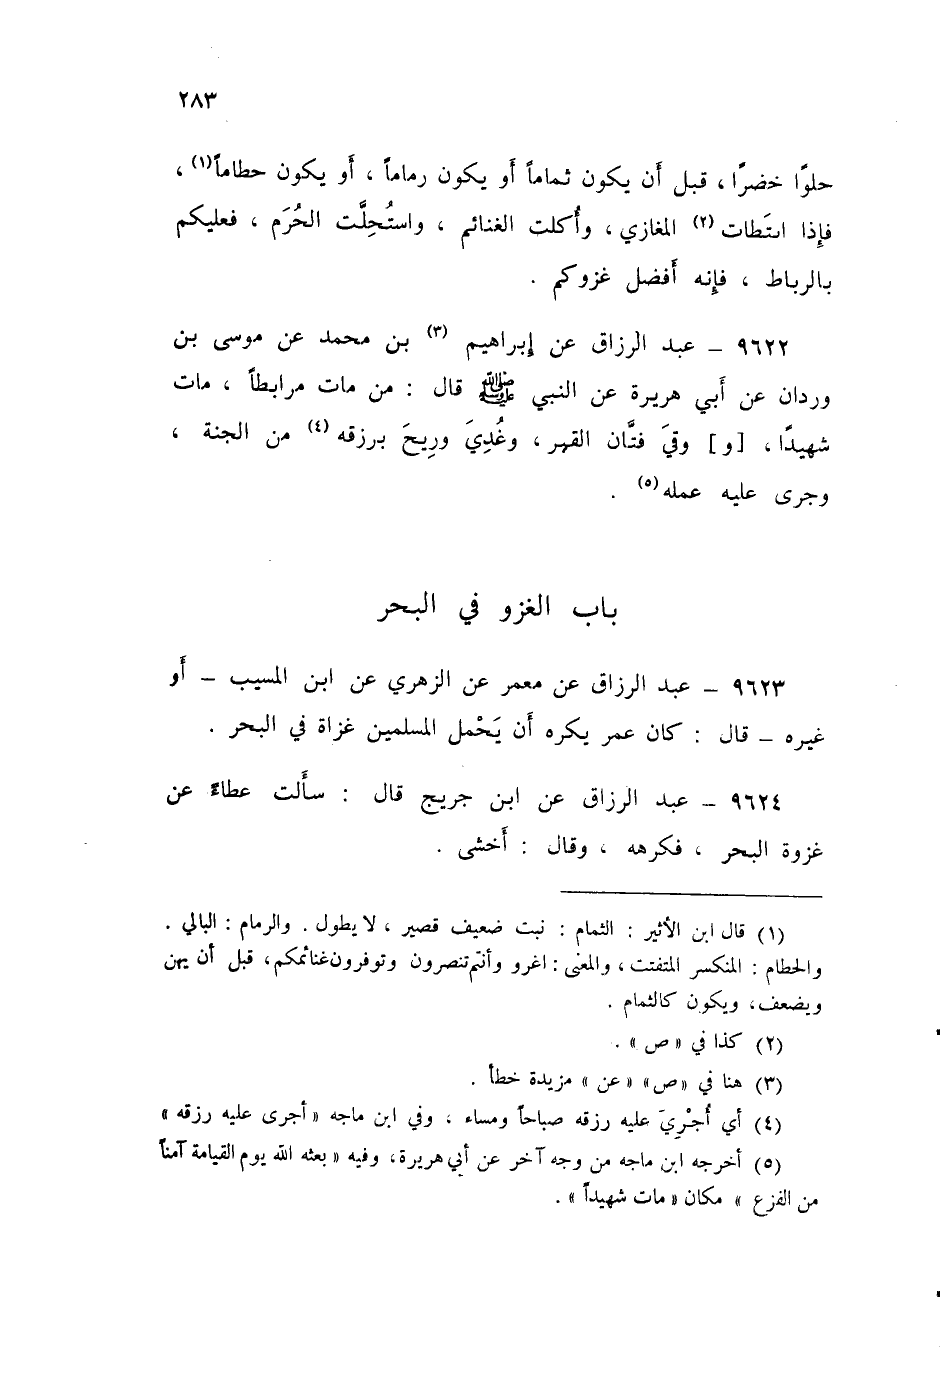 ٢٨٣
حلوًا خضرًا ، قبل أن يكون ثماماً أو يكون رماماً ، أو يكون حطاماً(١) ،
فإذا انتَطات (٢) المغازي ، وأُكلت الغنائم ، واستُحِلَّت الحُرَم ، فعليكم
بالرباط ، فإنه أفضل غزوكم .
٩٦٢٢ – عبد الرزاق عن إبراهيم (٣) بن محمد عن موسى بن
وردان عن أبي هريرة عن النبي ﷺ قال : من مات مرابطاً ، مات
شهيدًا ، [و] وقيَ فتَّان القبر ، وغُدِيَ ورِيحَ برزقه (٤) من الجنة ،
وجرى عليه عمله (٥) .
باب الغزو في البحر
٩٦٢٣ – عبد الرزاق عن معمر عن الزهري عن ابن المسيب – أو
غيره – قال : كان عمر يكره أن يَحْمل المسلمين غزاة في البحر .
٩٦٢٤ – عبد الرزاق عن ابن جريج قال : سألت عطاءً عن
غزوة البحر ، فكرهه ، وقال : أخشى .
(١) قال ابن الأثير : الثمام : نبت ضعيف قصير ، لا يطول . والرمام : البالي .
والحطام : المنكسر المتفتت ، والمعنى : اغرو وأنتم تنصرون وتوفرون غنائمكم ، قبل أن يهن
ويضعف ، ويكون كالثمام .
(٢) كذا في « ص » .
(٣) هنا في « ص » « عن » مزيدة خطأ .
(٤) أي أُجْرِيَ عليه رزقه صباحاً ومساء ، وفي ابن ماجه « أجرى عليه رزقه »
(٥) أخرجه ابن ماجه من وجه آخر عن أبي هريرة ، وفيه « بعثه الله يوم القيامة آمناً
من الفزع » مكان « مات شهيداً » .